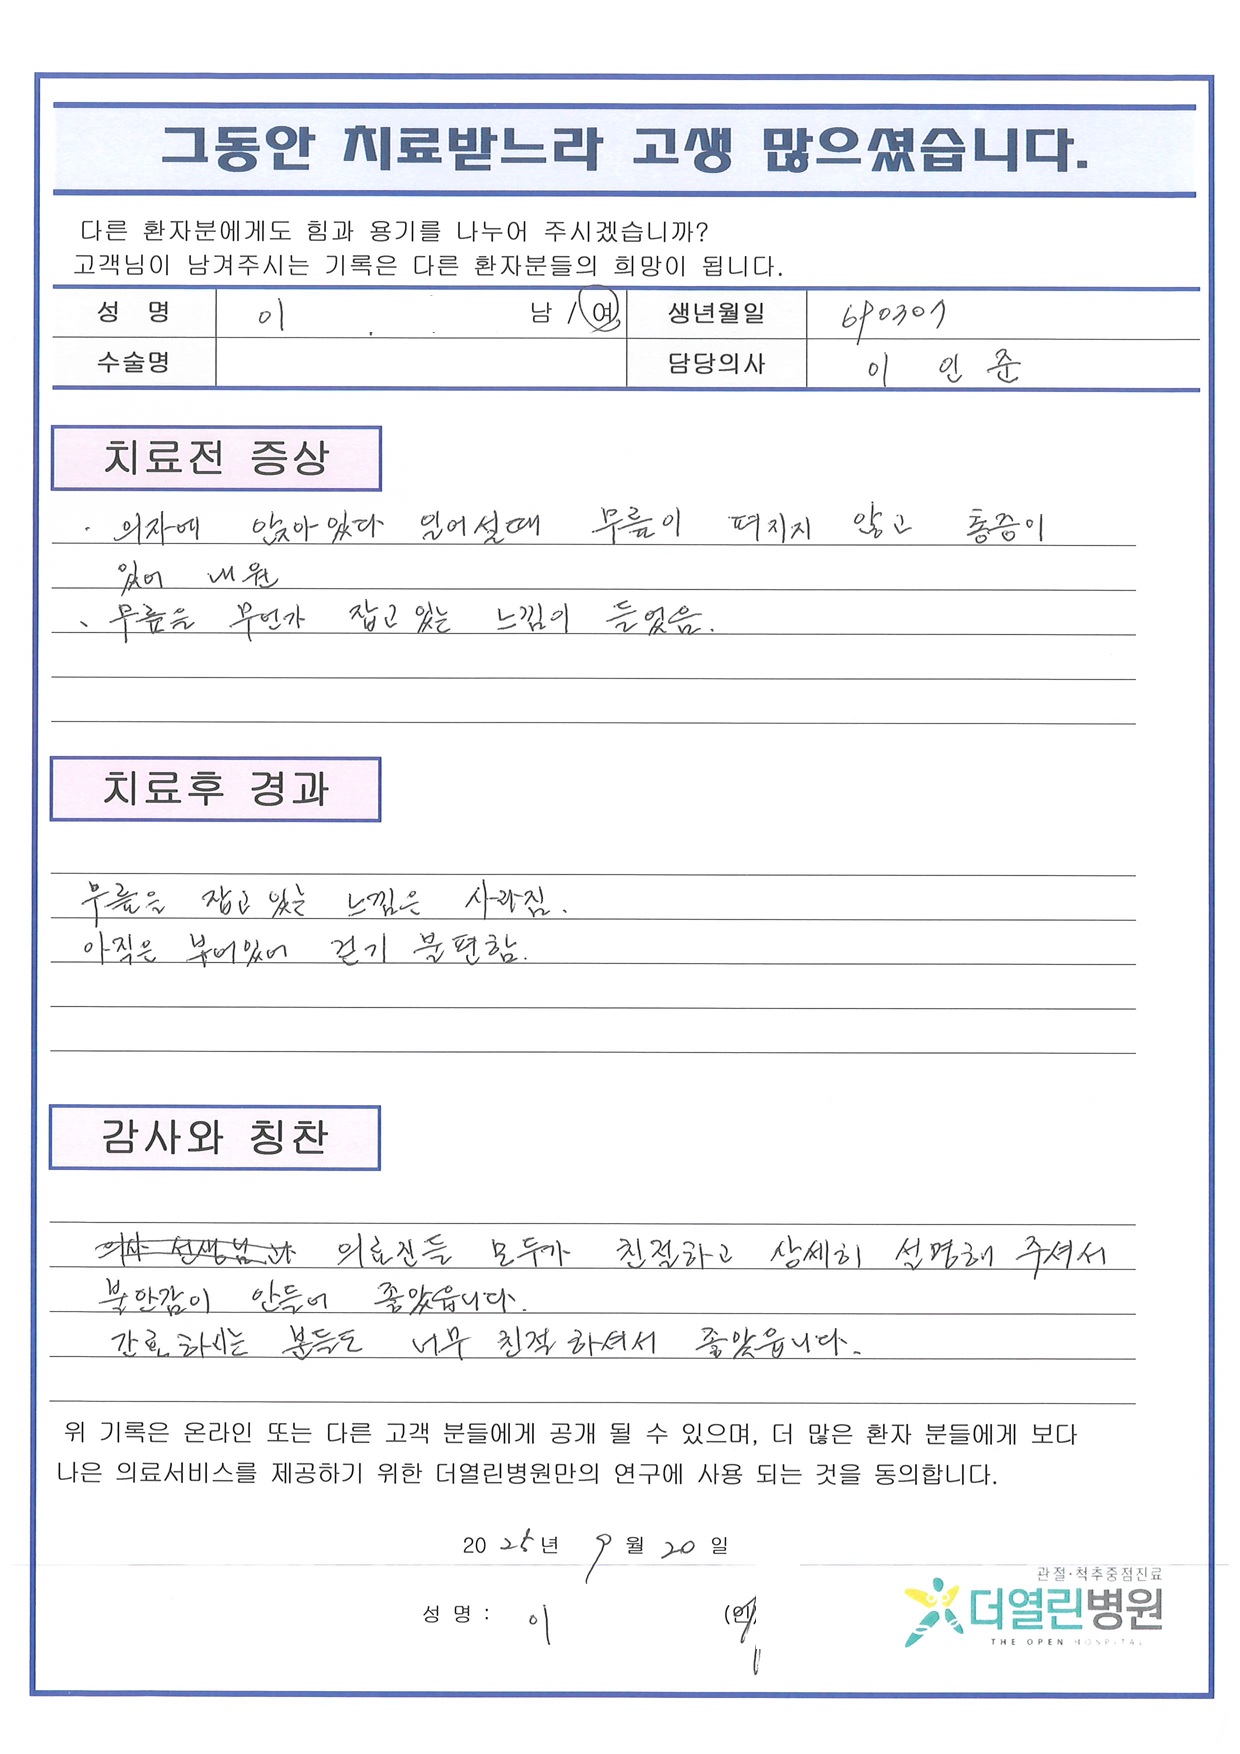 그동안 치료받느라 고생 많으셨습니다.
다른 환자분에게도 힘과 용기를 나누어 주시겠습니까?
고객님이 남겨주시는 기록은 다른 환자분들의 희망이 됩니다.
성 명 이 남 / 여 생년월일 690307
수술명 담당의사 이 인 준
치료전 증상
· 의자에 앉아있다 일어설때 무릎이 펴지지 않고 통증이
있어 내원
、 무릎을 무언가 잡고 있는 느낌이 들었음.
치료후 경과
무릎을 잡고 있는 느낌은 사라짐.
아직은 부어있어 걷기 불편함.
감사와 칭찬
의사 선생님과 의료진들 모두가 친절하고 상세히 설명해 주셔서
불안감이 안들어 좋았읍니다.
간호하시는 분들도 너무 친절하셔서 좋았읍니다.
위 기록은 온라인 또는 다른 고객 분들에게 공개 될 수 있으며, 더 많은 환자 분들에게 보다
나은 의료서비스를 제공하기 위한 더열린병원만의 연구에 사용 되는 것을 동의합니다.
2025년 9월 20일
성 명 : 이 (인)
관절·척추중점진료
더열린병원
THE OPEN HOSPITAL